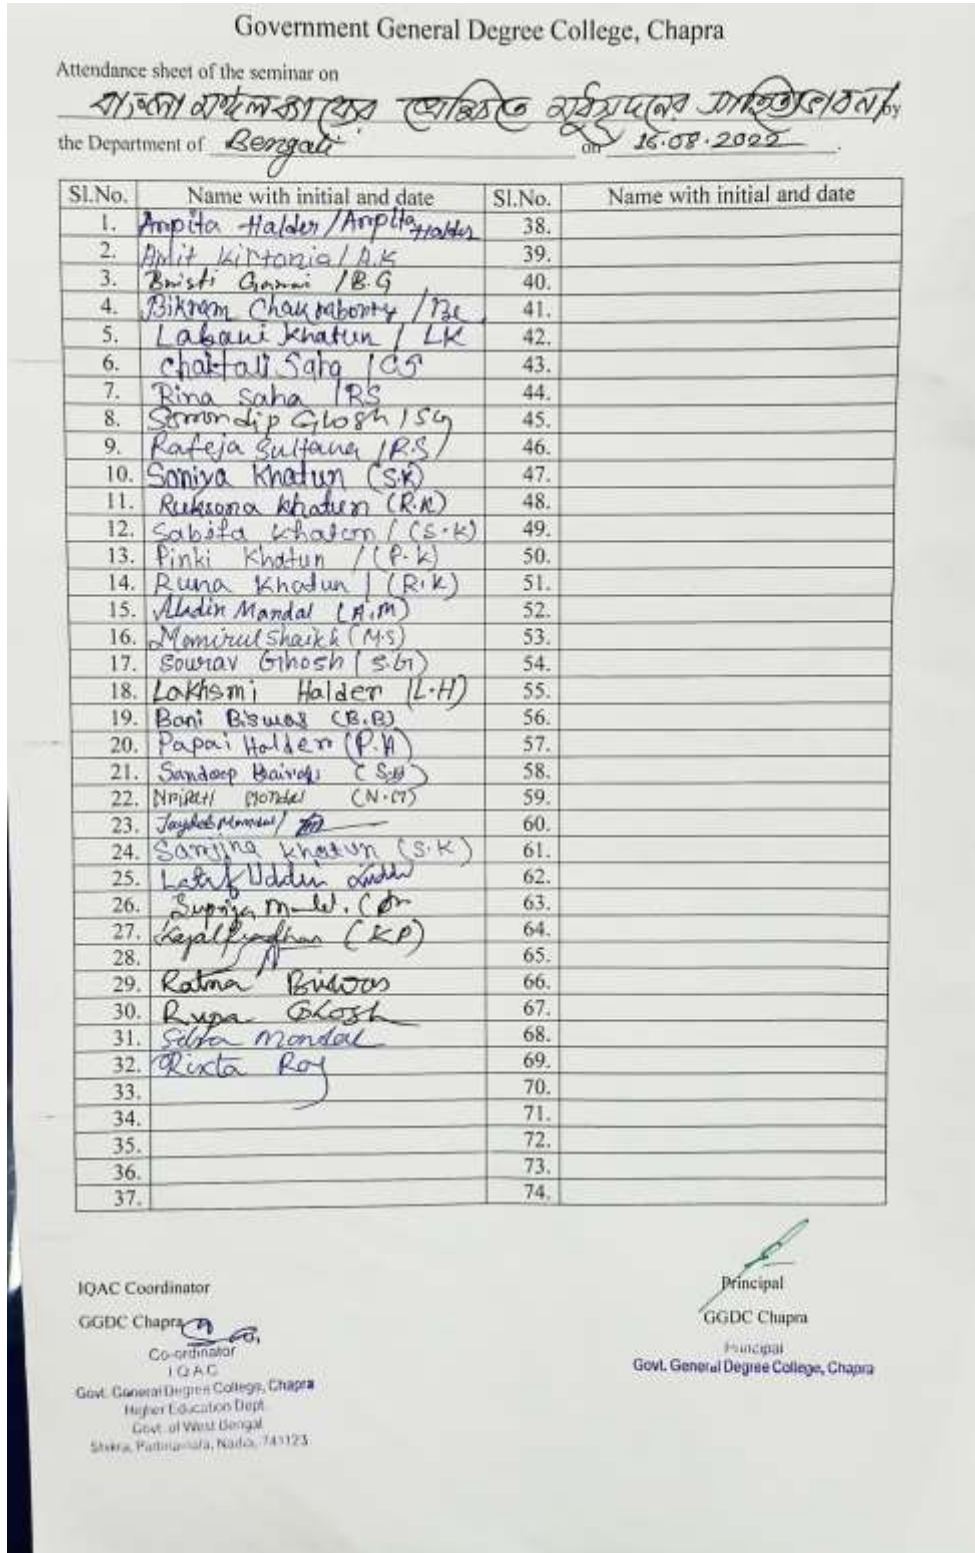 Government General Degree College, Chapra
Attendance sheet of the seminar on
বাংলা মঙ্গলকাব্যের প্রেক্ষিতে মধুসূদনের সাহিত্যভাবনা by
the Department of Bengali on 16.08.2022.
Sl.No. Name with initial and date Sl.No. Name with initial and date
1. Arpita Halder / Arpita Halder 38.
2. Amit Kirtonia / A.K 39.
3. Bristi / B.G 40.
4. Bikram Chakraborty / Bc 41.
5. Labani Khatun / LK 42.
6. Chaitali Saha / CS 43.
7. Rina Saha / RS 44.
8. Somondip Ghosh / SG 45.
9. Rafeja Sultana / R.S 46.
10. Soniya Khatun (S.K) 47.
11. Ruksona Khatun (R.K) 48.
12. Sabita Khatun / (S.K) 49.
13. Pinki Khatun / (P.K) 50.
14. Runa Khatun / (R.K) 51.
15. Aladin Mandal (A.M) 52.
16. Momirul Shaikh (M.S) 53.
17. Sourav Ghosh (S.G) 54.
18. Lakhsmi Halder (L.H) 55.
19. Bani Biswas (B.B) 56.
20. Papai Halder (P.H) 57.
21. Sandeep Bairagi (S.B) 58.
22. Nripati Mondal (N.M) 59.
23. Jaydeb Mondal / 60.
24. Sanjina Khatun (S.K) 61.
25. Latif Uddin 62.
26. Supriya 63.
27. Kajal Pradhan (KP) 64.
28. 65.
29. Ratna Biswas 66.
30. Rupa Ghosh 67.
31. Mondal 68.
32. Rixta Roy 69.
33. 70.
34. 71.
35. 72.
36. 73.
37. 74.
IQAC Coordinator
GGDC Chapra
Co-ordinator
IQAC
Govt. General Degree College, Chapra
Higher Education Dept.
Govt. of West Bengal
Shikra, Nadia, 741123
Principal
GGDC Chapra
Principal
Govt. General Degree College, Chapra